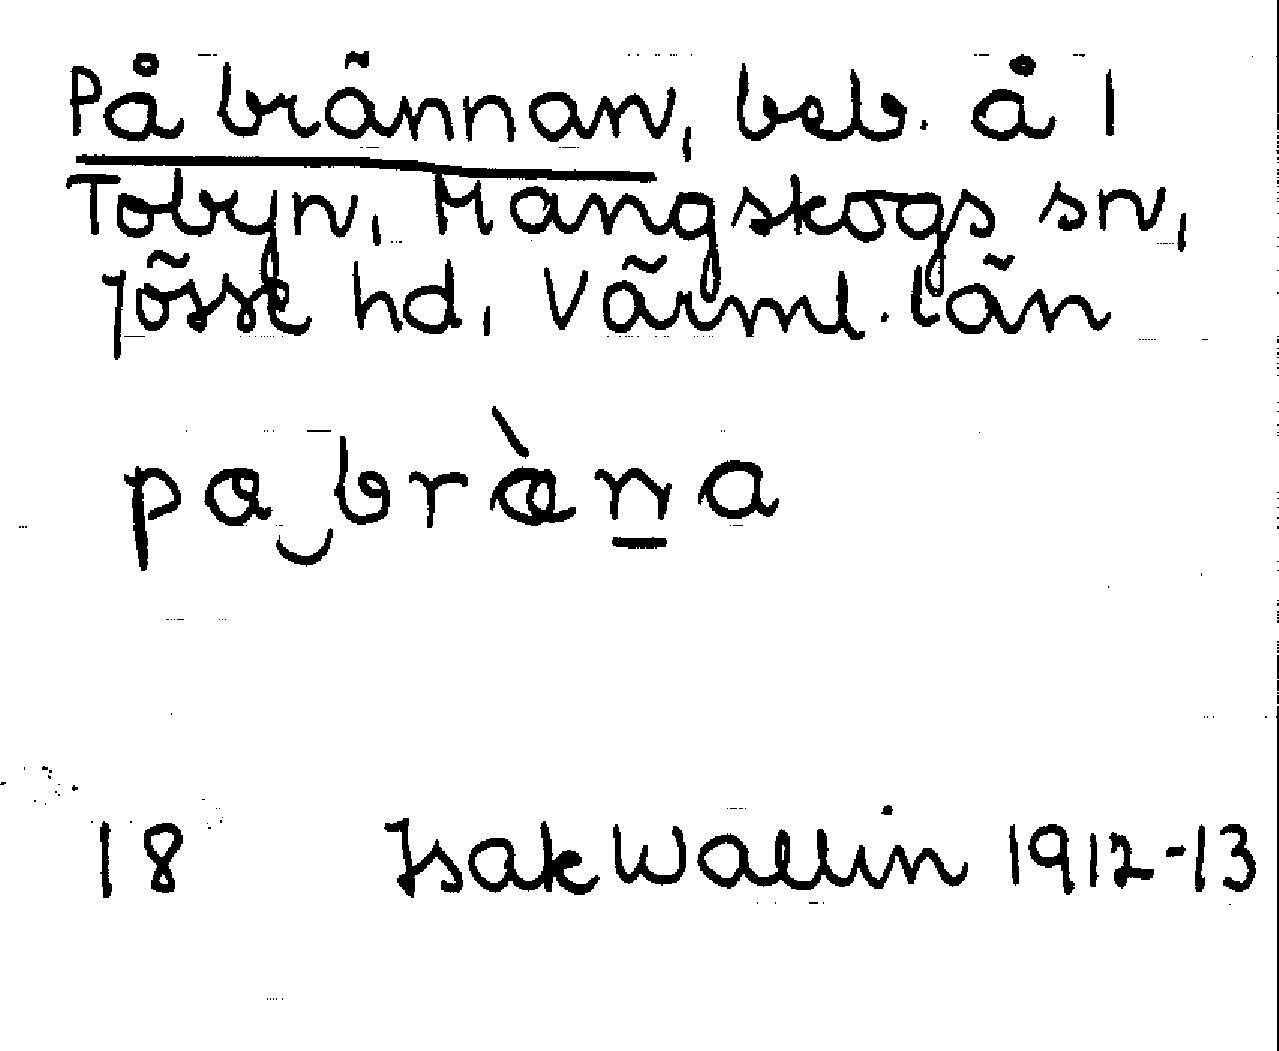 På brännan, beb. å 1
Tobyn, Mangskogs sn,
Jösse hd, Värml. län
pa‿bràn̲a
18 Isak Wallin 1912-13